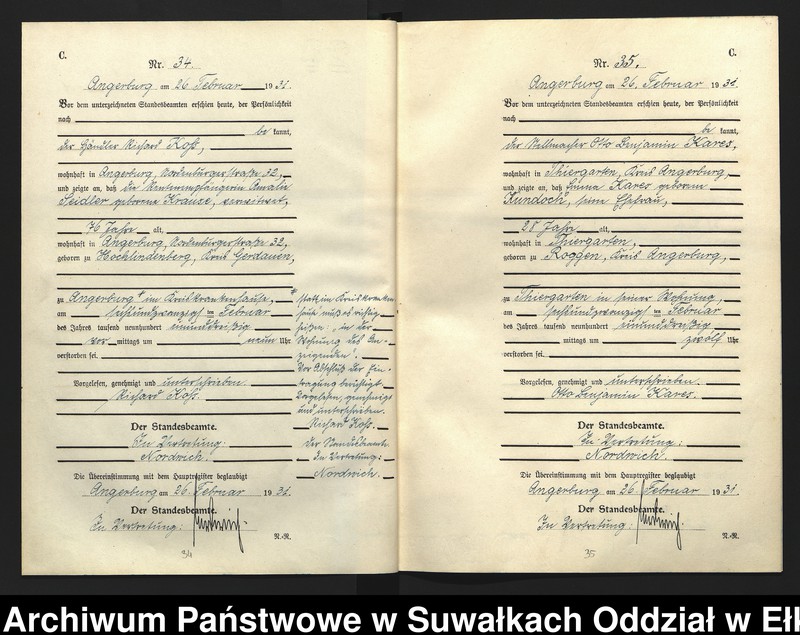 C.
Nr. 34.
Angerburg am 26. Februar 1931.
Vor dem unterzeichneten Standesbeamten erschien heute, der Persönlichkeit
nach
be kannt,
der Händler Richard Koss,
wohnhaft in Angerburg, Nordenburgerstraße 32,
und zeigte an, daß die Rentenempfängerin Amalie
Seidler geborene Krause, verwitwet,
76 Jahre alt,
wohnhaft in Angerburg, Nordenburgerstraße 32,
geboren zu Hochlindenberg, Kreis Gerdauen,
zu Angerburg im Kreiskrankenhause,
am sechsundzwanzigsten Februar
des Jahres tausend neunhundert einunddreißig
vor mittags um neun Uhr
verstorben sei.
statt im Kreiskranken-
hause muß es richtig
heißen: in der
Wohnung des An-
zeigenden.
Vor Abschluß der Ein-
tragung berichtigt.
Vorgelesen, genehmigt
und unterschrieben.
Richard Koss.
Der Standesbeamte.
In Vertretung:
Nordwich.
Vorgelesen, genehmigt und unterschrieben.
Richard Koss.
Der Standesbeamte.
In Vertretung:
Nordwich.
Die Übereinstimmung mit dem Hauptregister beglaubigt
Angerburg am 26. Februar 1931.
Der Standesbeamte.
In Vertretung:
N.-R.
34
C.
Nr. 35.
Angerburg am 26. Februar 1931.
Vor dem unterzeichneten Standesbeamten erschien heute, der Persönlichkeit
nach
be kannt,
der Stellmacher Otto Benjamin Kares,
wohnhaft in Thiergarten, Kreis Angerburg,
und zeigte an, daß Emma Kares geborene
Kundoch, seine Ehefrau,
28 Jahre alt,
wohnhaft in Thiergarten,
geboren zu Roggen, Kreis Angerburg,
zu Thiergarten in seiner Wohnung,
am sechsundzwanzigsten Februar
des Jahres tausend neunhundert einunddreißig
mittags um zwölf Uhr
verstorben sei.
Vorgelesen, genehmigt und unterschrieben.
Otto Benjamin Kares.
Der Standesbeamte.
In Vertretung:
Nordwich.
Die Übereinstimmung mit dem Hauptregister beglaubigt
Angerburg am 26. Februar 1931.
Der Standesbeamte.
In Vertretung:
N.-R.
35
Archiwum Państwowe w Suwałkach Oddział w Ełk